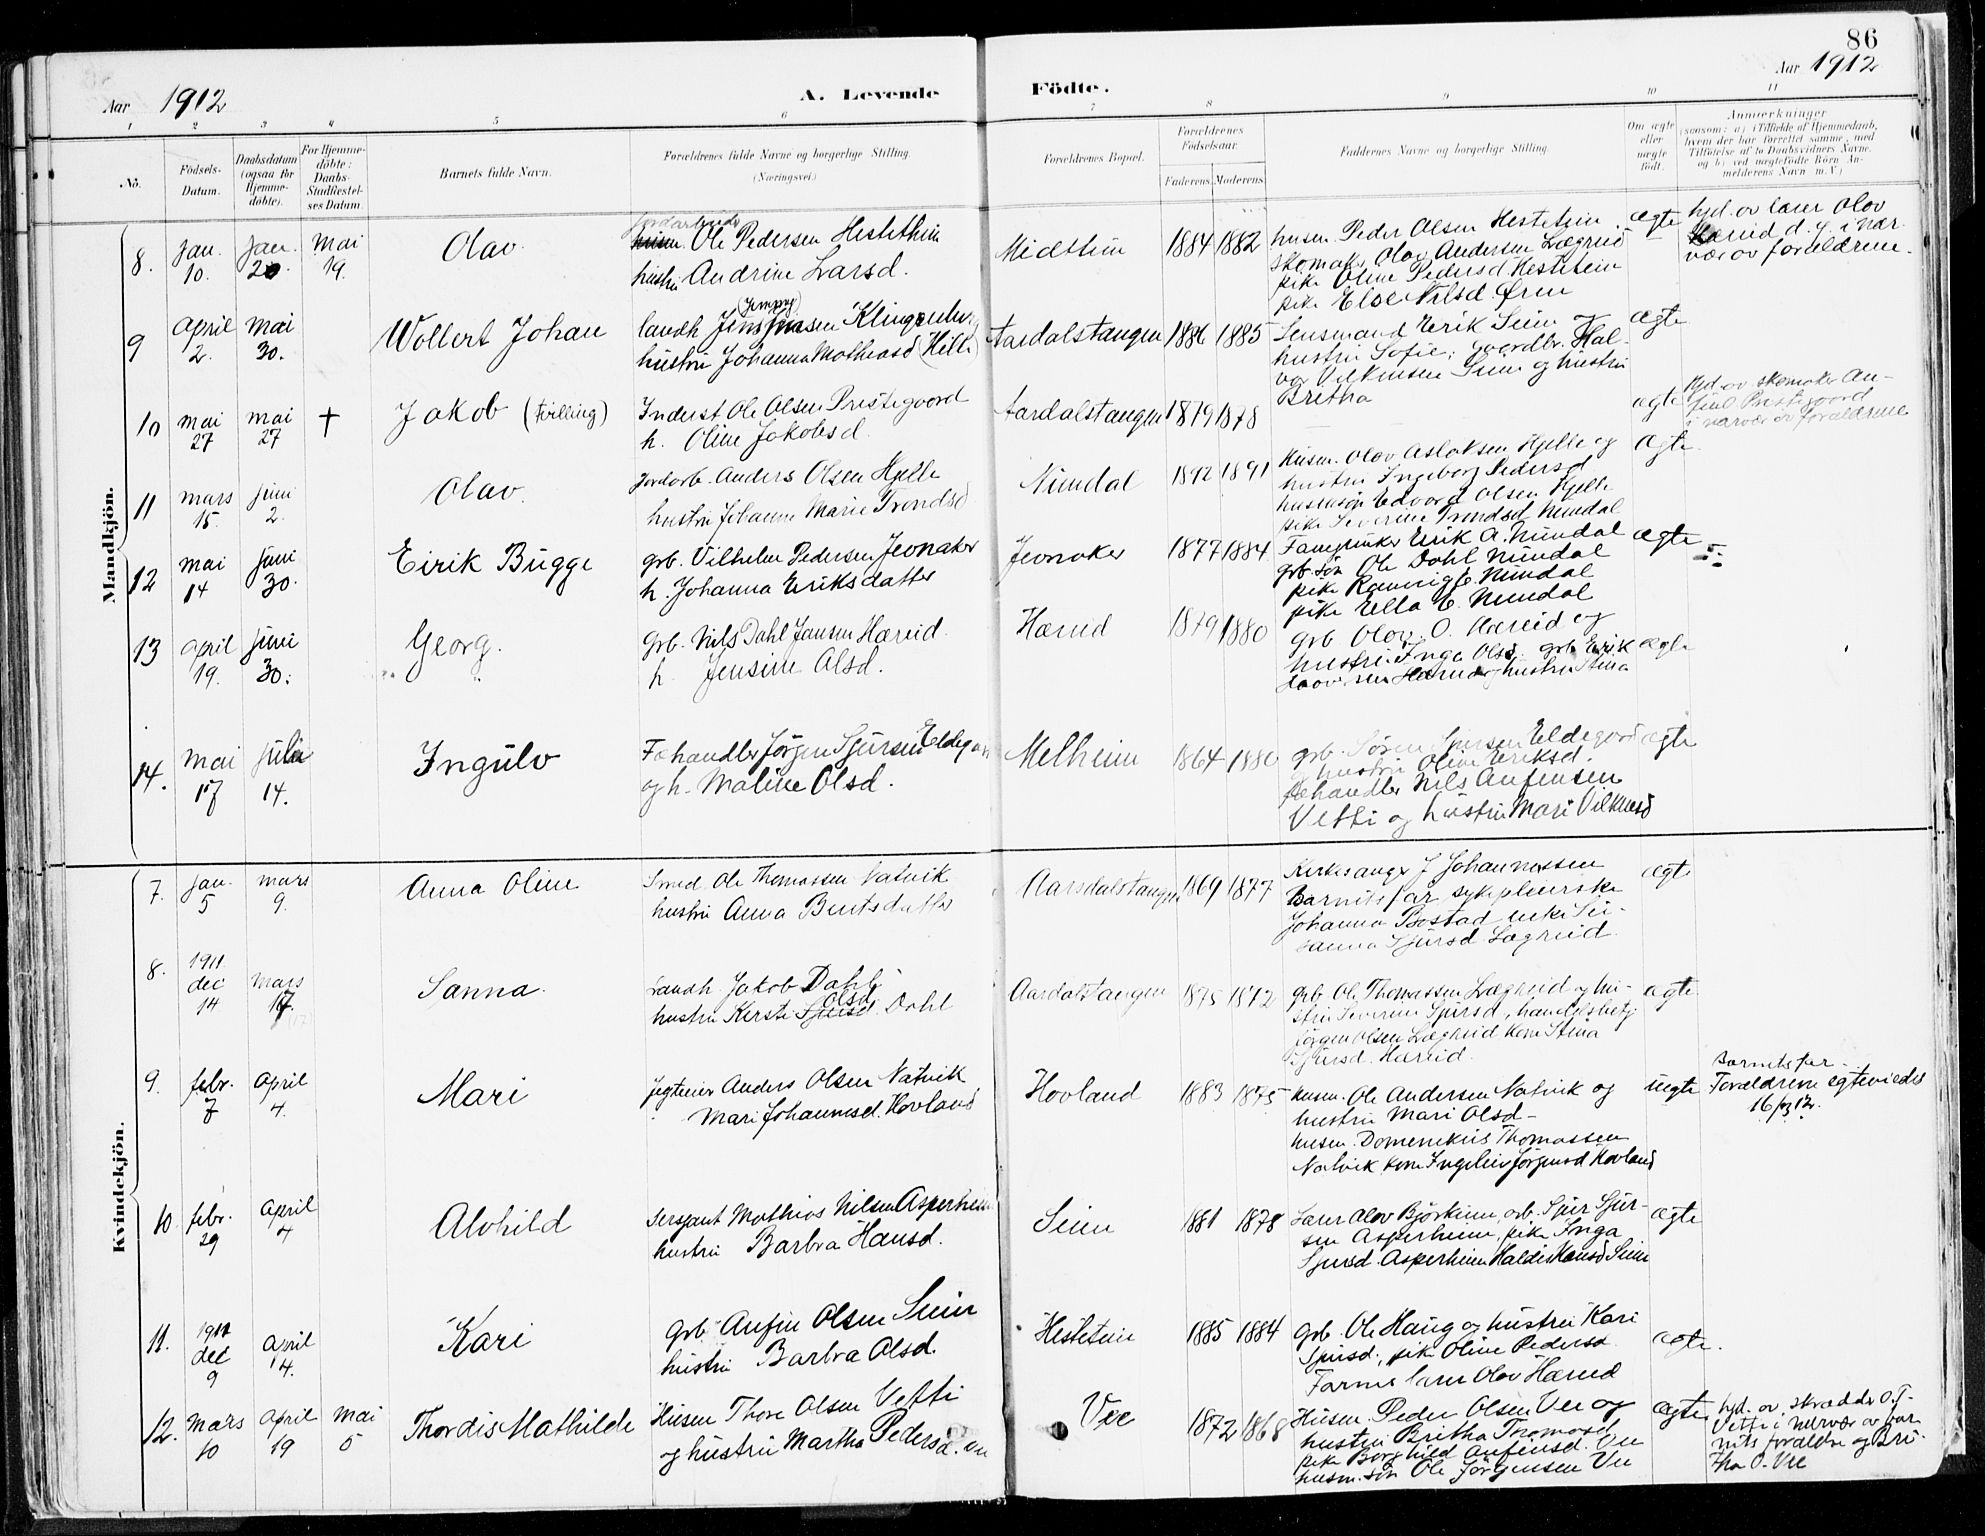 86
Aar 1912
A. Levende
Födte.
Aar 1912
1 2 3 4 5 6 7 8 9 10 11
No.
Födsels-
Datum.
Daabsdatum
(ogsaa for
Hjemme-
döbte).
For Hjemme-
döbte:
Daabs-
Stadfæstel-
ses Datum.
Barnets fulde Navn.
Forældrenes fulde Navne og borgerlige Stilling
(Næringsvei.)
Forældrenes Bopæl.
Forældrenes
Födselsaar.
Faderens.
Moderens.
Faddernes Navne og borgerlige Stilling.
Om ægte
eller
uægte
født.
Anmærkninger
(saasom: a) i Tilfælde af Hjemmedaab,
hvem der har forrettet samme, med
Tilföielse af to Daabsvidners Navne.
og b) ved uægtefödte Börn An-
melderens Navn m. V.)
Mandkjön.
8. jan. 10. jan. 20. mai 19. Olav
jordarbeider
Ole Pedersen Hestethun
hustru Andrine Larsd.
1884 1882
husm. Peder Olsen Hestetun
skomaker Olav Andersen Lægreid
pike Oline Pedersd Hestetun
pike Else Nilsd. Øren
ægte
hjd. av lærer Olav
Hæreid d. y. i nær-
vær av forældrene.
9 april 2. mai 30. Wollert Johan
landh. Klingenberg
hustru Johanna Mathiasd (Hille)
Aardalstangen 1886 1885
Lensmand Erik Seim og
hustru Sofie; gaardbr. Hal-
vor Vilkensen Seim og hustru
Britha
ægte
10 mai 27 mai 27 † Jakob (tvilling)
Inderst Ole Olsen Prestegaard
h. Oline Jakobsd.
Aardalstangen 1879 1878
ægte
hjd. av skomaker An-
Prestegaard
i nærvær av forældrene
11 mars 15. juni 2. Olav.
jordarb. Anders Olsen Hjelle
hustru Johanne Marie Trondsd
Nundal 1892 1891
husm. Olav Aslaksen Hjelle og
hustru Ingeborg Pedersd
husmsøn Edvard Olsen Hjelle
pike Severine Trondsd Nundal
ægte.
12 mai 14 juni 30. Eirik Bugge
grb. Vilhelm Pedersen Jevnaker
h. Johanna Eriksdatter
Jevnaker 1877 1884
Erik A. Nundal
grb.søn Ole Dahl Nundal
pike Rannvig E. Nundal
pike Ella E. Nundal
ægte
13 april 19. juni 30. Georg.
Grb. Nils Dahl Jansen Hæreid.
h. Jensine Olsd.
Hæreid 1879 1880
grb Olav O. Hæreid og
hustru Inga Olsd. grb. Erik
Hæreid og hustru Stina
ægte
14. mai 17 juli 14. Ingulv
Fæhandler Jörgen Sjursen Eldegard
og h. Maline Olsd.
Melheim 1864 1880
grb. Sören Sjursen Eldegard
og hustru Oline Eriksd.
fæhandler Nils Anfensen
Vetti og hustru Mari Vilkensd
ægte
Kvindekjön.
7. jan. 5 mars 9. Anna Oline
Smed Ole Thomassen Natvik
hustru Anna Bentsdatter
Aarsdalstangen 1869 1877
Kirkesanger J Johannessen
Barnets far, sykepleierske
Johanna Bøstad, enke Su-
sanna Sjursd Lægreid.
ægte
8. 1911 dec 14 mars 17. Sanna.
Landh. Jakob Dahl
hustru Kersti Olsd. Dahl
Aardalstangen 1875 1872
grb. Ole Thomassen Lægreid og hu-
stru Severine Sjursd, handelsbetj
Jörgen Olsen Lægreid kone Stina
Sjursd. Hæreid.
ægte
9. febr. 7 april 4. Mari
Jegteier Anders Olsen Natvik
Mari Johannesd. Hovland
Hovland 1883 1875
husm. Ole Andersen Natvik og
hustru Mari Olsd-
husm. Domenikus Thomassen
Natvik kone Ingeleiv Jörgensd Hovland
uegte
Barnets far-
Forældrene egteviedes
16/3 12.
10 febr. 29 april 4 Alvhild
Sersjant Mathias Nilsen Asperheim
hustru Barbra Hansd.
Seim 1881 1878
Lærer Olav Björkum, arb. Sjur Sjur-
sen Asperheim, pike Inga
Sjursd. Asperheim Haldis Hansd Seim
ægte
11. 1911 dec 9 april 14. Kari
Grb. Anfin Olsen Seim
hustru Barbra Olsd.
Hestetun 1885 1884
grb. Ole Haug og hustru Kari
Sjursd., pike Oline Pedersd
lærer Olav Hæreid
ægte.
12. Mars 10 april 19 mai 5 Thordis Mathilde
Husm Thore Olsen Vetti
og hustru Martha Pedersd. Vee
Vee 1872 1868
Husm. Peder Olsen Vee og
hustru Britha Thomasd
pike Borghild Anfinsd. Vee
husm.søn Ole Jörgensen Vee
ægte
hjd. av skrædder O. T.
Vetti i nærvær av bar-
nets forældre og Bri-
tha O. Vee